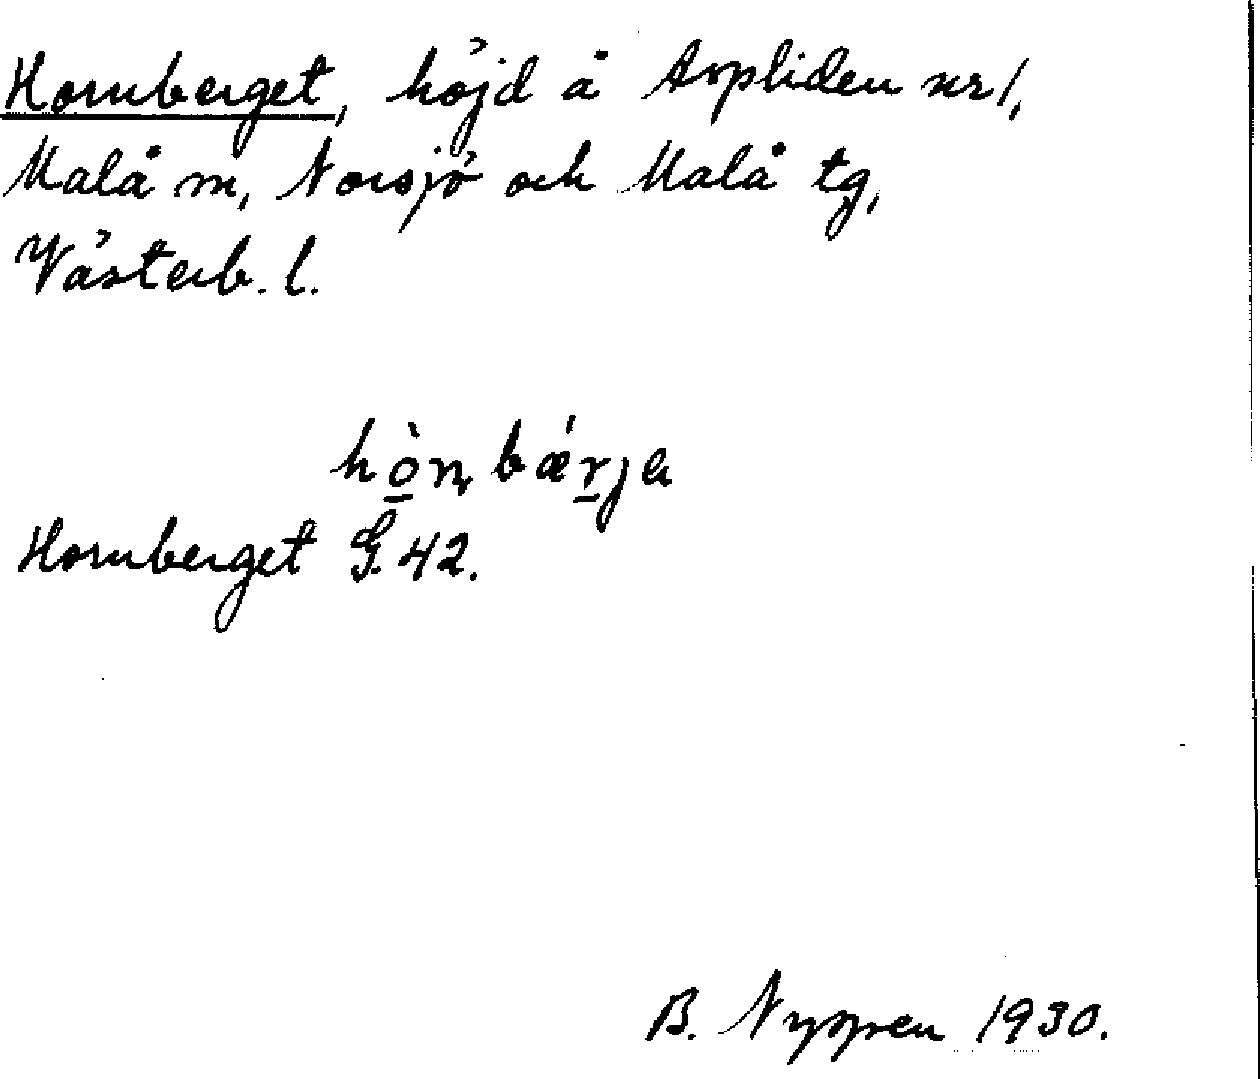 Hornberget, höjd å Aspliden nr 1,
Malå sn, Norsjö och Malå tg,
Västerb. l.
hò̱n̩bǽr̲ja
Hornberget G. 42.
B. 1930.